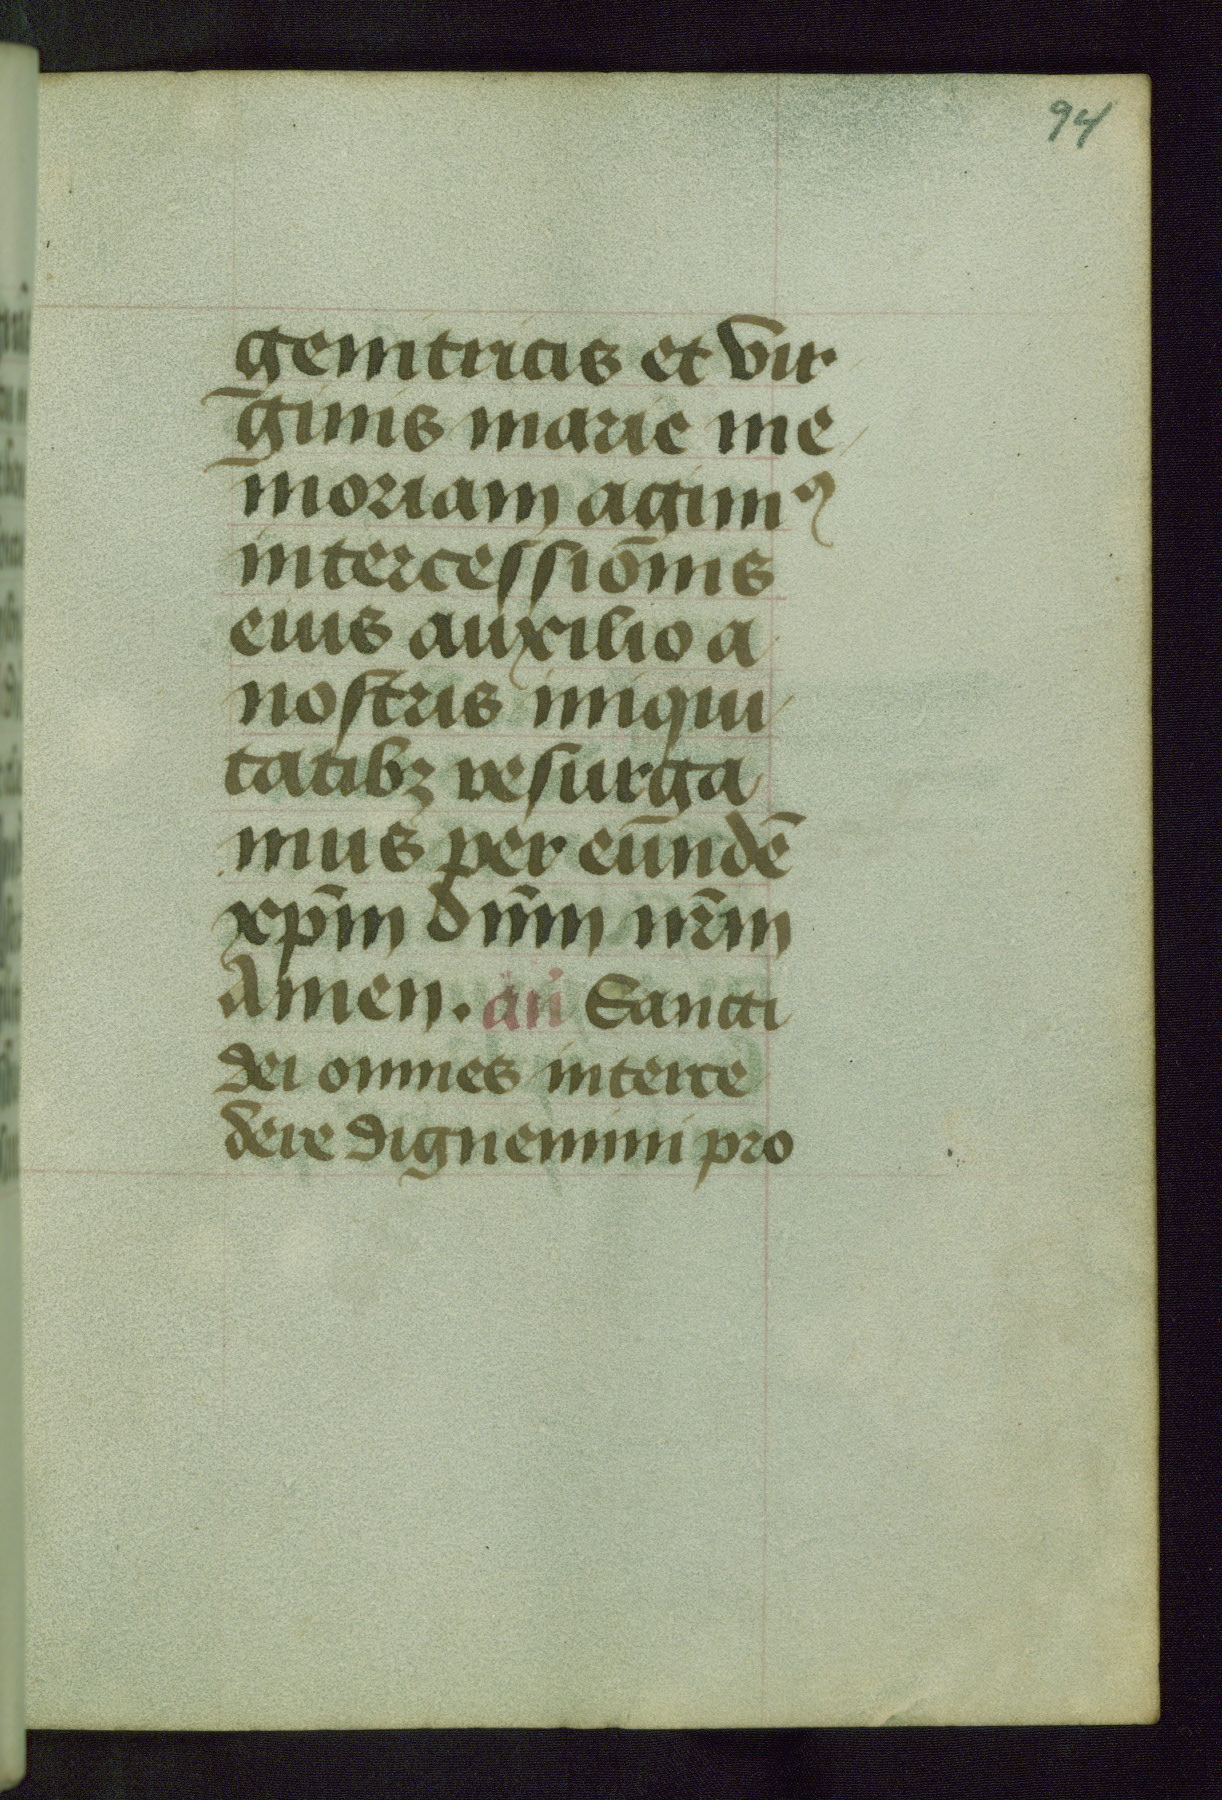 94
genitricis et vir
ginis marie me
moriam agimꝰ
intercessiōnis
eius auxilio a
nostris iniqui
tatibꝫ resurga
mus per eūndē
xp̄m dn̄m nr̄m
Amen. an̄ Sancti
dei omnes interce
dere dignemini pro